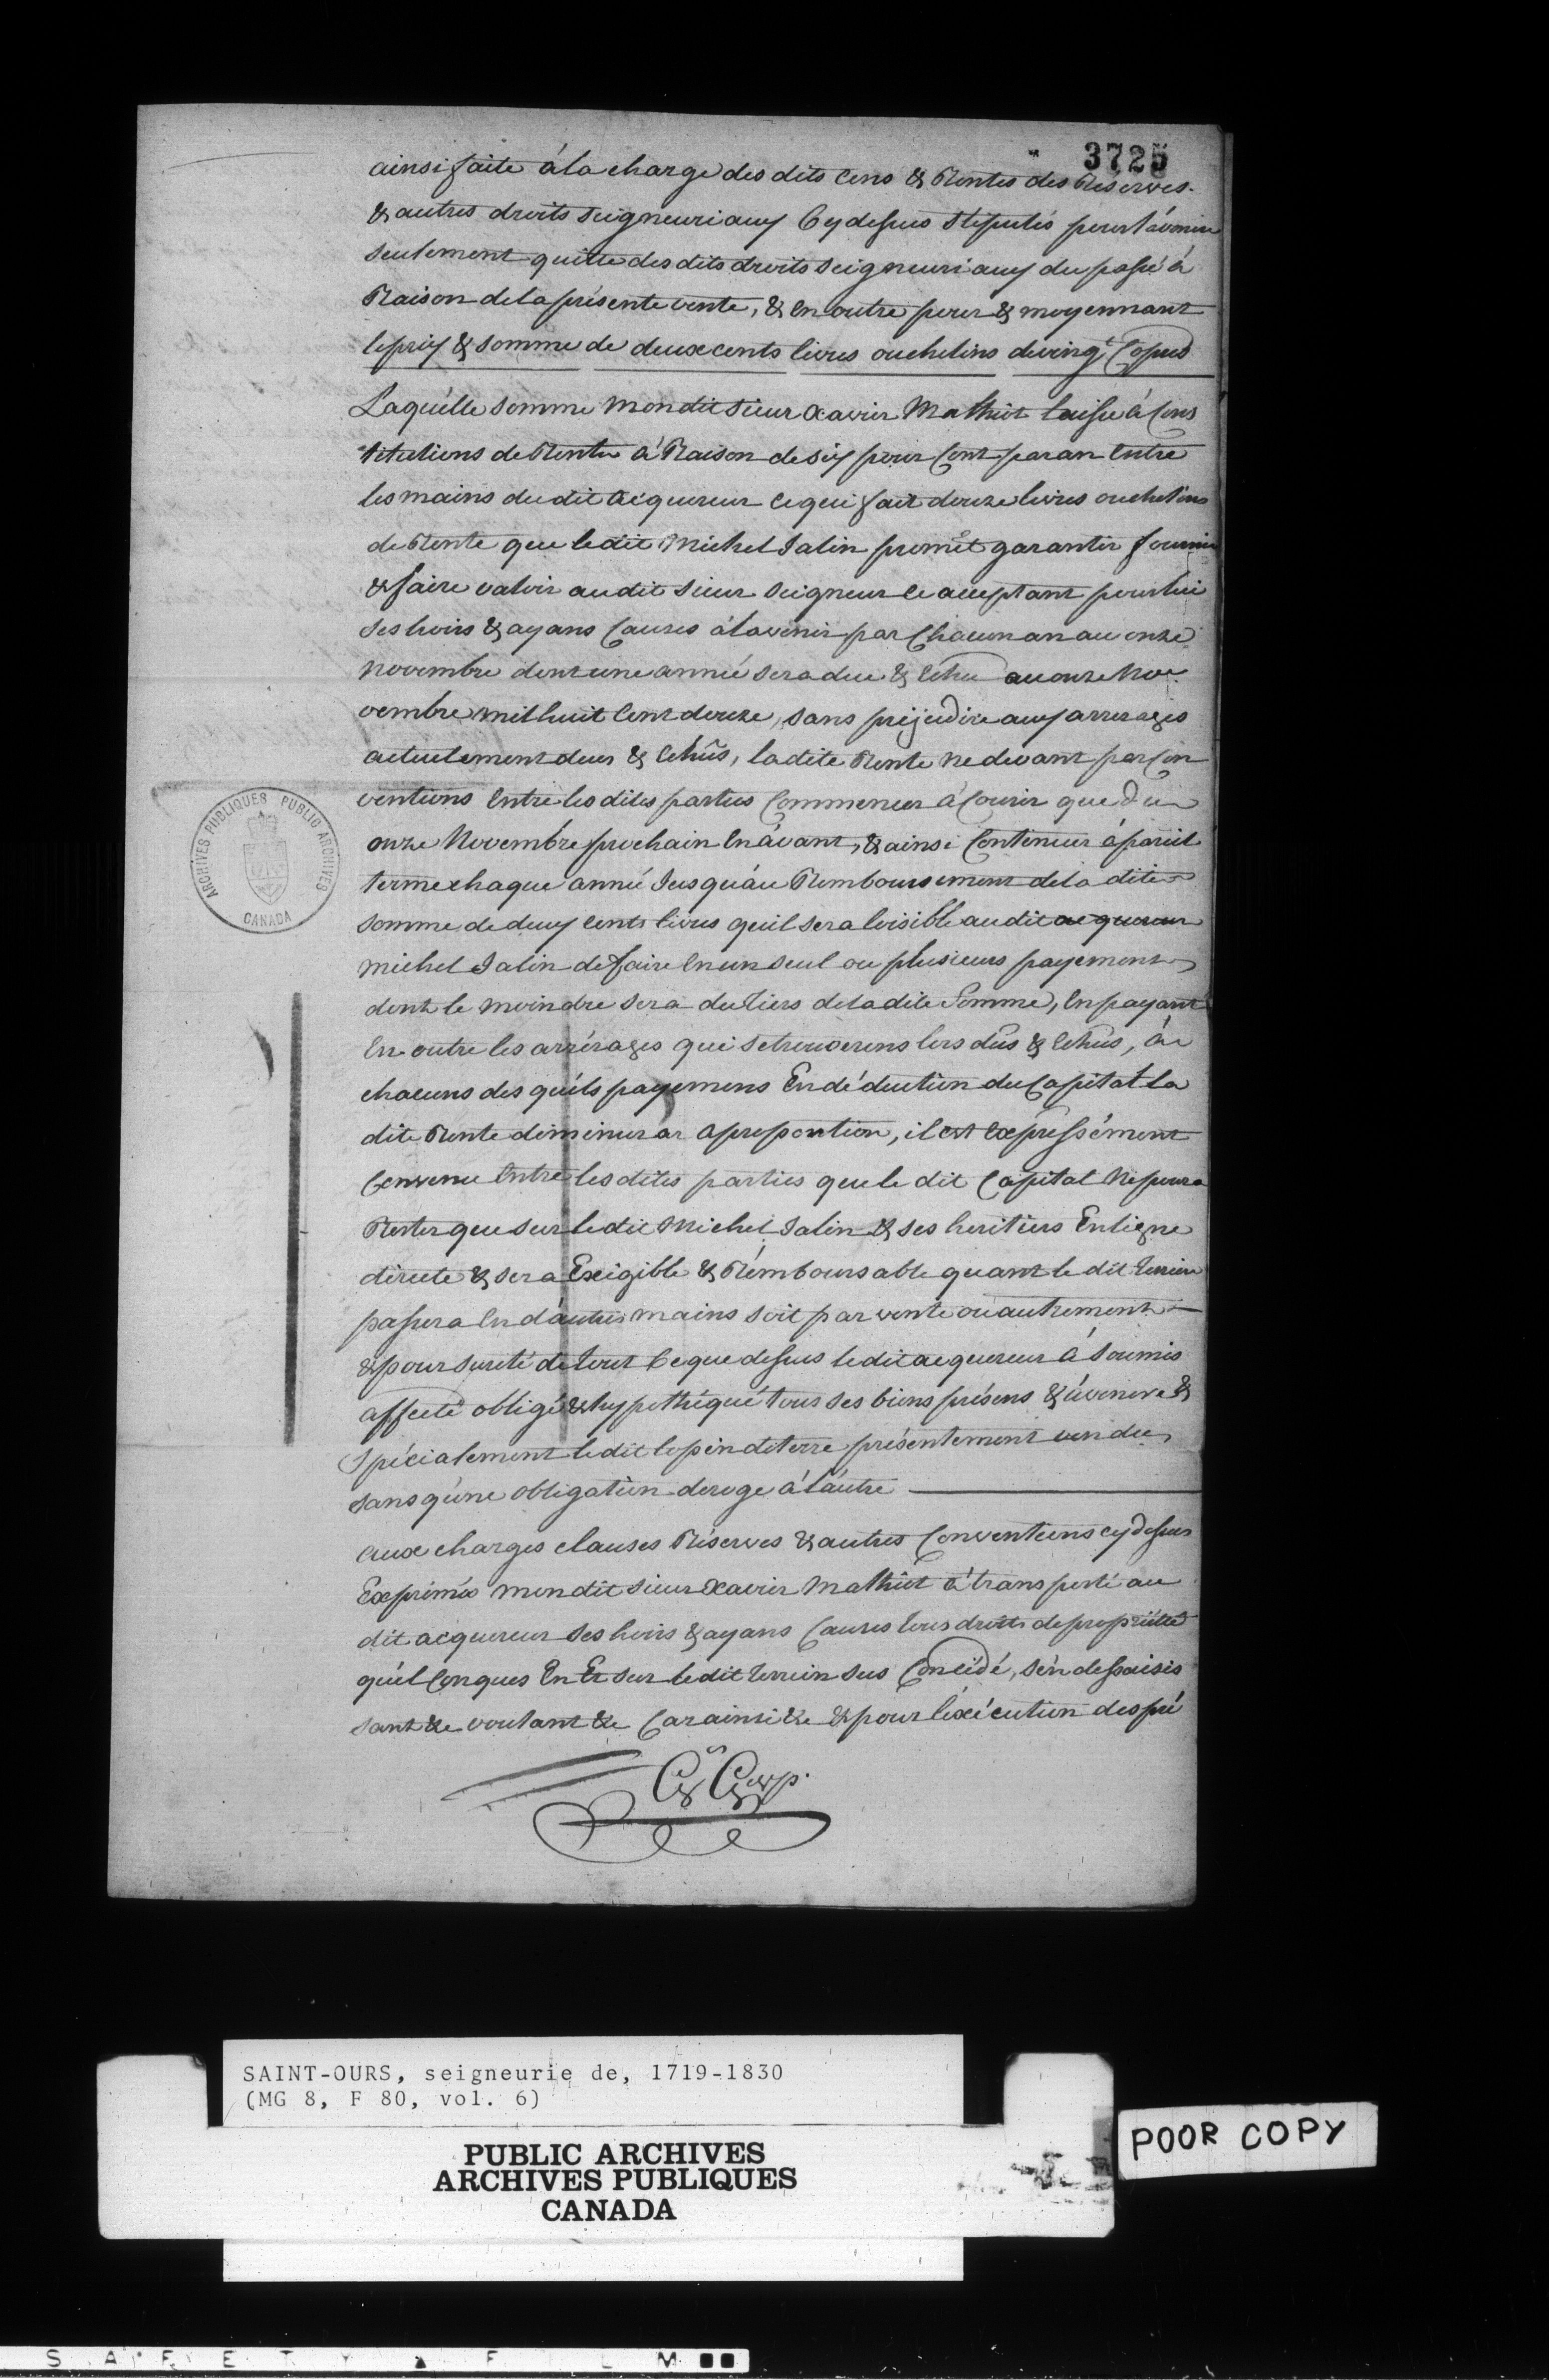 3725
ainsi faite à la charge des dits Cens & Rentes des Réserves
& autres droits seigneuriaux Cy dessus stipulés pour l'avenir
seulement quitte des dits droits seigneuriaux du passé à
Raison de la présente vente, & En outre pour & moyennant
le prix & somme de deux cents livres ou chelins de vingt Copus
Laquelle somme mondit sieur Xavier Mathiot laisse à Cons
titutions de Rente à Raison de six pour Cent par an Entre
les mains du dit acquereur Ce qui fait douze livres ou chelins
de Rente que le dit Michel Jalin promèt garantir fournir
& faire valoir au dit sieur seigneur Ce acceptant pour lui
ses hoirs & ayans Causes à l'avenir par Chacun an au onze
novembre dont une année sera due & Echu au onze Nov
vembre mil huit Cent douze, sans préjudice aux arrerages
actuelement dus & Echûs, la dite Rente ne devant par Con
ventions Entre les dites parties Commencer à Courir que du
onze Novembre prochain En àvant, & ainsi Continuer à pareil
terme chaque année Jusqu'au Remboursement de la dite
somme de deux Cents livres qu'il sera loisible au dit acquereur
Michel Jalin de faire En un seul ou plusieurs payements
dont le moindre sera du tiers de la dite Somme, En payant
En outre les arrérages qui se trouverons lors dûs & Echûs, à
chacuns des quéls payemens En déduction du Capital la
dite Rente diminuera a proportion, il est Expréssément
Convenu Entre les dites parties que le dit Capital Ne poura
Rester que sur le dit Michel Jalin & ses heritiers En ligne
directe & sera Exigible & Rémboursable quant le dit terrein
passera En d'autres mains soit par vente ou autrement
& pour sureté de tout Ce que dessus le dit acquereur à soumis
affecté obligé & hypothéqué tous ses biens présens & àvenir &
Spécialement le dit lopin de terre présentement vendu
sans qu'une obligation deroge à l'autre
aux charges clauses Réserves & autres Conventions cy dessus
Exprimés mon dit sieur Xavier Mathiot à transporté au
dit acquereur ses hoirs & ayans Causes tous droits de propriété
quél Conques En Et sur le dit terrein sus Concédé, s'én dessaisis
sant &c voulant &c Car ainsi &c & pour l'éxécution des pré
ARCHIVES PUBLIQUES PUBLIC ARCHIVES
CANADA
SAINT-OURS, seigneurie de, 1719-1830
(MG 8, F 80, vol. 6)
PUBLIC ARCHIVES
ARCHIVES PUBLIQUES
CANADA
POOR COPY
SAFETY FILM